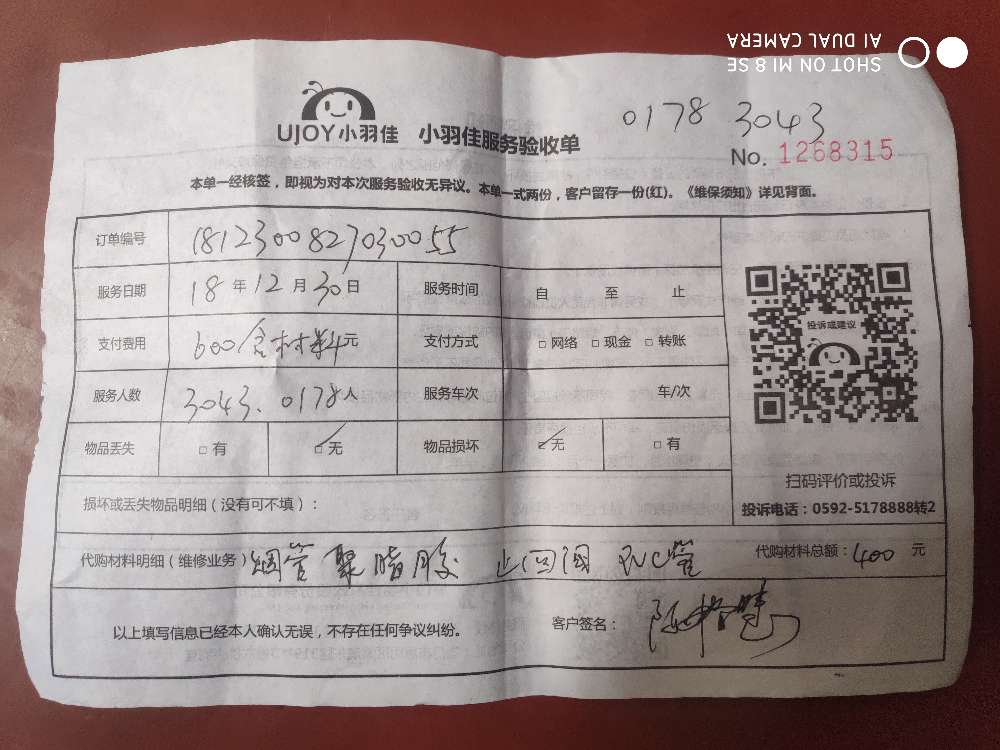 SHOT ON MI 8 SE
AI DUAL CAMERA
UJOY小羽佳 小羽佳服务验收单
0178 3043
No. 1268315
本单一经核签，即视为对本次服务验收无异议。本单一式两份，客户留存一份(红)。《维保须知》详见背面。
订单编号 18123008270300 55
服务日期 18 年 12 月 30 日 服务时间 自 至 止
支付费用 600含材料元 支付方式 □ 网络 □ 现金 □ 转账
服务人数 3043、0178人 服务车次 车/次
物品丢失 □ 有 ☑ 无 物品损坏 ☑ 无 □ 有
投诉或建议
扫码评价或投诉
投诉电话：0592-5178888转2
损坏或丢失物品明细（没有可不填）：
代购材料明细（维修业务）烟管 聚脂胶 止回阀 PVC管 代购材料总额：400 元
以上填写信息已经本人确认无误，不存在任何争议纠纷。 客户签名：